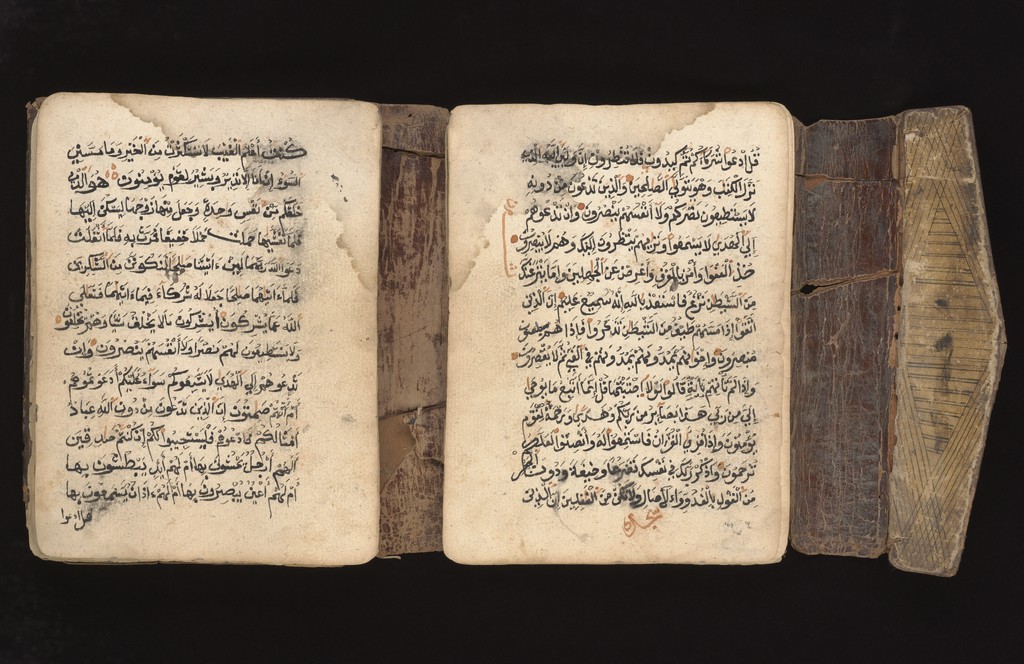 كنت أعلم الغيب لاستكثرت من الخير وما مسني
السوء إن أنا إلا نذير وبشير لقوم يؤمنون هو الذي
خلقكم من نفس وحدة وجعل منها زوجها ليسكن إليها
فلما تغشيها حملت حملا خفيفا فمرت به فلما أثقلت
دعوا الله ربهما لئن ءاتيتنا صلحا لنكونن من الشكرين
فلما ءاتيهما صلحا جعلا له شركاء فيما ءاتيهما فتعلى
الله عما يشركون أيشركون ما لا يخلق شيئا وهم يخلقون
ولا يستطيعون لهم نصرا ولا أنفسهم ينصرون وإن
تدعوهم إلى الهدى لا يتبعوكم سواء عليكم أدعوتموهم
أم أنتم صمتون إن الذين تدعون من دون الله عباد
أمثالكم فادعوهم فليستجيبوا لكم إن كنتم صدقين
ألهم أرجل يمشون بها أم لهم أيد يبطشون بها
أم لهم أعين يبصرون بها أم لهم ءاذان يسمعون بها
قل ادعوا
قل ادعوا شركاءكم ثم كيدون فلا تنظرون إن وليي الله الذي
نزل الكتب وهو يتولى الصلحين والذين تدعون من دونه
لا يستطيعون نصركم ولا أنفسهم ينصرون وإن تدعوهم
إلى الهدى لا يسمعوا وتريهم ينظرون إليك وهم لا يبصرون
خذ العفو وأمر بالعرف وأعرض عن الجهلين وإما ينزغنك
من الشيطن نزغ فاستعذ بالله إنه سميع عليم إن الذين
اتقوا إذا مسهم طئف من الشيطن تذكروا فإذا هم
مبصرون وإخونهم يمدونهم في الغي ثم لا يقصرون
وإذا لم تأتهم بآية قالوا لولا اجتبيتها قل إنما أتبع ما يوحى
إلي من ربي هذا بصائر من ربكم وهدى ورحمة لقوم
يؤمنون وإذا قرئ القرءان فاستمعوا له وأنصتوا لعلكم
ترحمون واذكر ربك في نفسك تضرعا وخيفة ودون الجهر
من القول بالغدو والأصال ولا تكن من الغفلين إن الذين